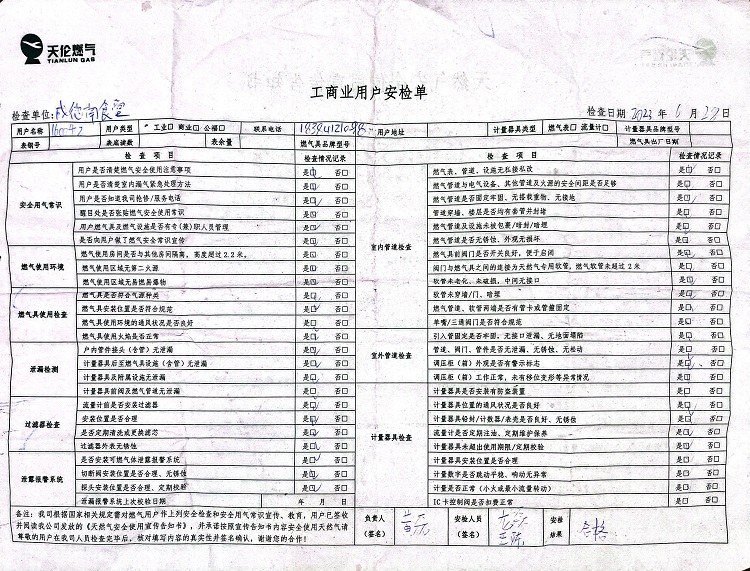 天伦燃气
TIANLUN GAS
工商业用户安检单
检查单位：
检查日期 2023 年 6 月 29 日
用户名称 用户类型 工业□ 商业□ 公福□ 联系电话 用户地址 计量器具类型 燃气表□ 流量计□ 计量器具品牌型号
表钢号 表底读数 表余量 燃气具品牌型号 燃气具出厂日期
检 查 项 目 检查情况记录 检 查 项 目 检查情况记录
安全用气常识
用户是否清楚燃气安全使用注意事项 是□ 否□
用户是否清楚室内漏气紧急处理方法 是□ 否□
用户是否知我司抢修/服务电话 是□ 否□
醒目处是否张贴燃气安全使用常识 是□ 否□
用户燃气具及燃气设施是否有专(兼)职人员管理 是□ 否□
是否向用户做了燃气安全常识宣传 是□ 否□
燃气使用环境
燃气使用房间是否与其他房间隔离，高度超过2.2米。 是□ 否□
燃气使用区域无第二火源 是□ 否□
燃气使用区域无易燃易爆物 是□ 否□
燃气具使用检查
燃气具是否符合气源种类 是□ 否□
燃气具安装位置是否符合规范 是□ 否□
燃气具使用环境的通风状况是否良好 是□ 否□
燃气具使用火焰是否正常 是□ 否□
泄漏检测
户内管件接头（含管）无泄漏 是□ 否□
计量器具后至燃气具设施（含管）无泄漏 是□ 否□
计量器具及附属设施无泄漏 是□ 否□
计量器具前阀及燃气管道无泄漏 是□ 否□
过滤器检查
流量计前是否安装过滤器 是□ 否□
安装位置是否合理 是□ 否□
是否定期清洗或更换滤芯 是□ 否□
过滤器外表无锈蚀 是□ 否□
泄露报警系统
是否安装可燃气体泄露报警系统 是□ 否□
切断阀安装位置是否合理、无锈蚀 是□ 否□
探头安装位置是否合理、定期校验 是□ 否□
泄漏报警系统上次校验日期 年 月 日
室内管道检查
燃气表、管道、设施无私接私改 是□ 否□
燃气管道与电气设备、其他管道及火源的安全间距是否足够 是□ 否□
燃气管道是否固定牢固、无搭载重物、无接地 是□ 否□
管道穿墙、楼层是否均有套管并封堵 是□ 否□
燃气管道及设施未被包裹/暗封/暗埋 是□ 否□
燃气管道是否无锈蚀、外观无损坏 是□ 否□
燃气具前阀门是否开关良好，便于启闭 是□ 否□
阀门与燃气具之间的连接为天然气专用软管，燃气软管未超过2米 是□ 否□
软管未老化、未破损，中间无接口 是□ 否□
软管未穿墙/门，暗埋 是□ 否□
燃气管道、软管两端是否有管卡或管箍固定 是□ 否□
单嘴/三通阀门是否符合规范 是□ 否□
室外管道检查
引入管固定是否牢固，无接口泄漏、无地面塌陷 是□ 否□
管道、阀门、管件是否无泄漏、无锈蚀、无松动 是□ 否□
调压柜（箱）外观是否有警示标志 是□ 否□
调压柜（箱）工作正常，未有移位变形等异常情况 是□ 否□
计量器具检查
计量器具是否安装有防盗装置 是□ 否□
计量器具位置的通风状况是否良好 是□ 否□
计量器具铅封/计数器/表壳是否良好、无锈蚀 是□ 否□
流量计是否定期注油、定期维护保养 是□ 否□
计量器具未超出使用期限/定期校验 是□ 否□
计量器具安装位置是否合理 是□ 否□
计量数字是否跳动平稳、响动无异常 是□ 否□
计量是否正常（小火或最小流量转动） 是□ 否□
IC卡控制阀是否扣费正常 是□ 否□
备注：我司根据国家相关规定需对燃气用户作上列安全检查和安全用气常识宣传、教育，用户已签收
并阅读我公司发放的《天然气安全使用宣传告知书》，并承诺按照宣传告知书内容安全使用天然气请
尊敬的用户在我司人员检查完毕后，核对填写内容的真实性并签名确认，谢谢您的合作！
负责人（签名）
安检人员（签名）
安检结果 合格